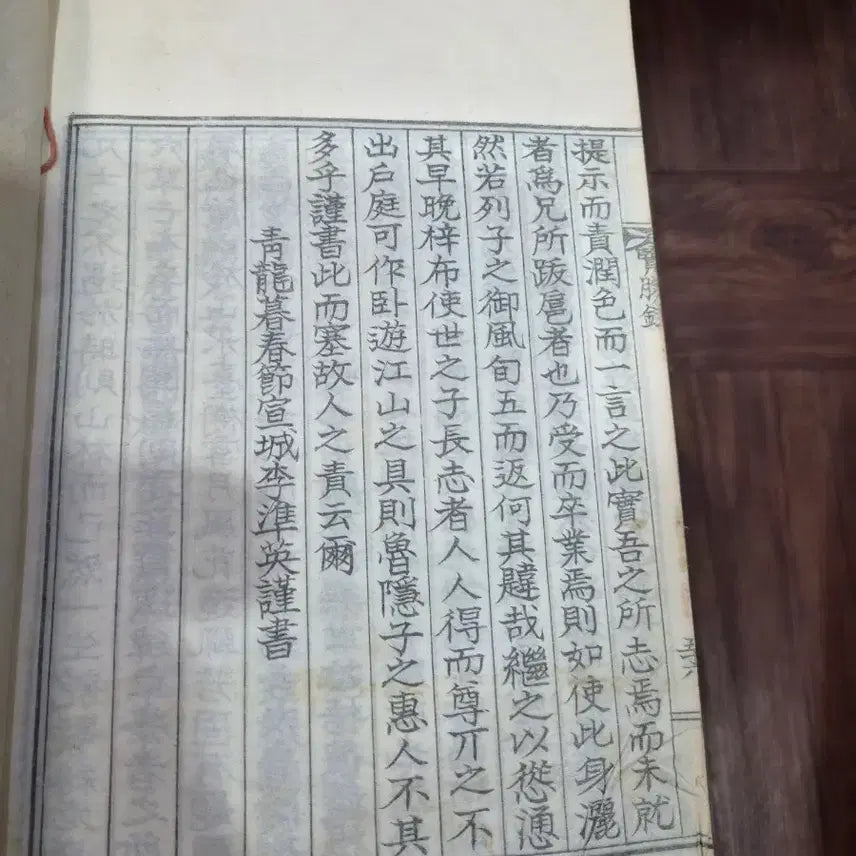 勝錄
提示而責潤色而一言之此實吾之所志焉而未就
者爲兄所跋扈者也乃受而卒業焉則如使此身灑
然若列子之御風旬五而返何其韙哉繼之以慫慂
其早晚梓布使世之子長志者人人得而尊丌之不
出戶庭可作卧遊江山之具則魯隱子之惠人不其
多乎謹書此而塞故人之責云爾
靑龍暮春節宣城李準英謹書